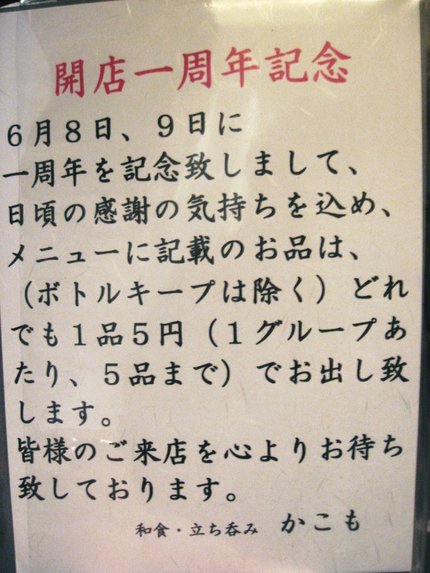 開店一周年記念
6月8日、9日に
一周年を記念致しまして、
日頃の感謝の気持ちを込め、
メニューに記載のお品は、
(ボトルキープは除く)どれ
でも1品5円(1グループあ
たり、5品まで)でお出し致
します。
皆様のご来店を心よりお待ち
致しております。
和食・立ち呑み かこも